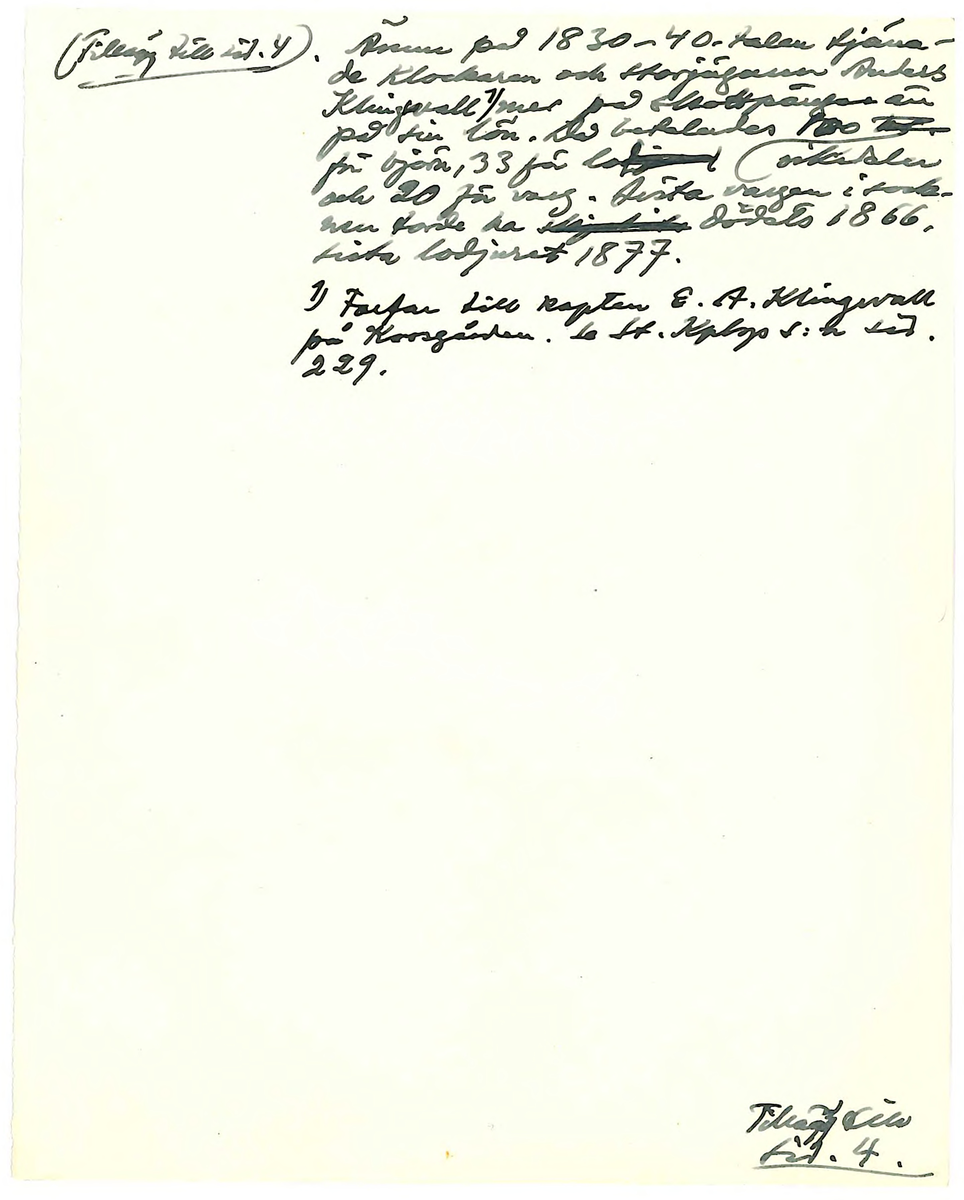 (Tillägg till sid. 4). Ännu på 1830-40-talen tjäna-
de klockaren och storjägaren Anders
Klingvall 1) mer på skottpängar än
på sin lön. Då betalades 100
för björn, 33 för lo riksdaler
och 20 för varg. Sista vargen i sock-
nen torde ha dödats 1866,
sista lodjuret 1877.
1) Farfar till kapten E. A. Klingvall
på Korsgården. Se St. Kpbgs s:n sid.
229.
Tillägg till
sid. 4.